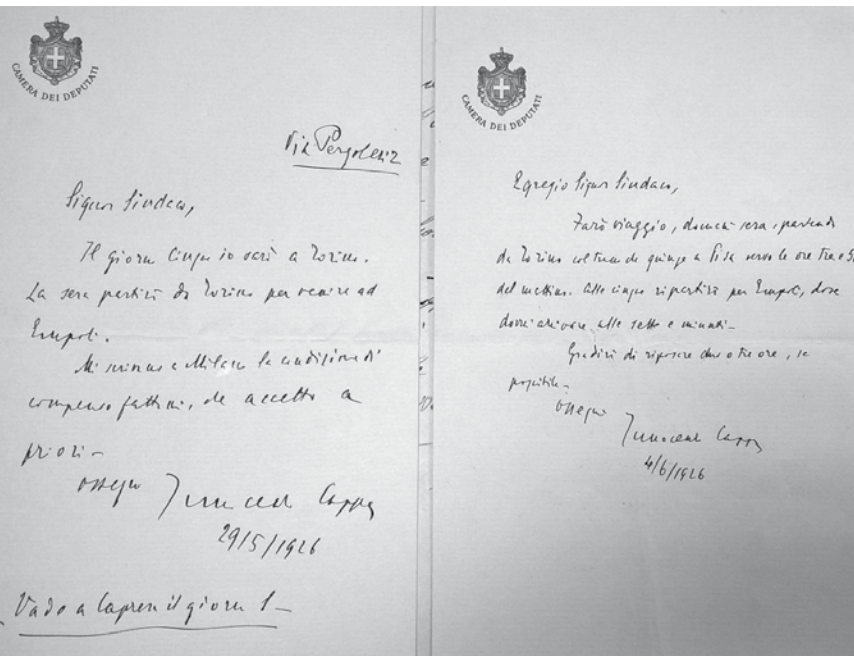 CAMERA DEI DEPUTATI
Via Pergolesi 2
Signor Sindaco,
Il giorno cinque io sarò a Torino.
La sera partirò da Torino per venire ad
Empoli.
Mi scrivano a Milano la condizione di
compenso fattami, che accetto a
priori –
ossequi Innocenzo Cappa
29/5/1926
Vado a Caprese il giorno 1 –
CAMERA DEI DEPUTATI
Egregio Signor Sindaco,
Farò viaggio, domani sera, partendo
da Torino col treno che giunge a Pisa verso le ore tre e
del mattino. Alle cinque ripartirò per Empoli, dove
dovrei arrivare alle sette e minuti –
Gradirò di riposare due o tre ore, se
possibile –
ossequi
Innocenzo Cappa
4/6/1926